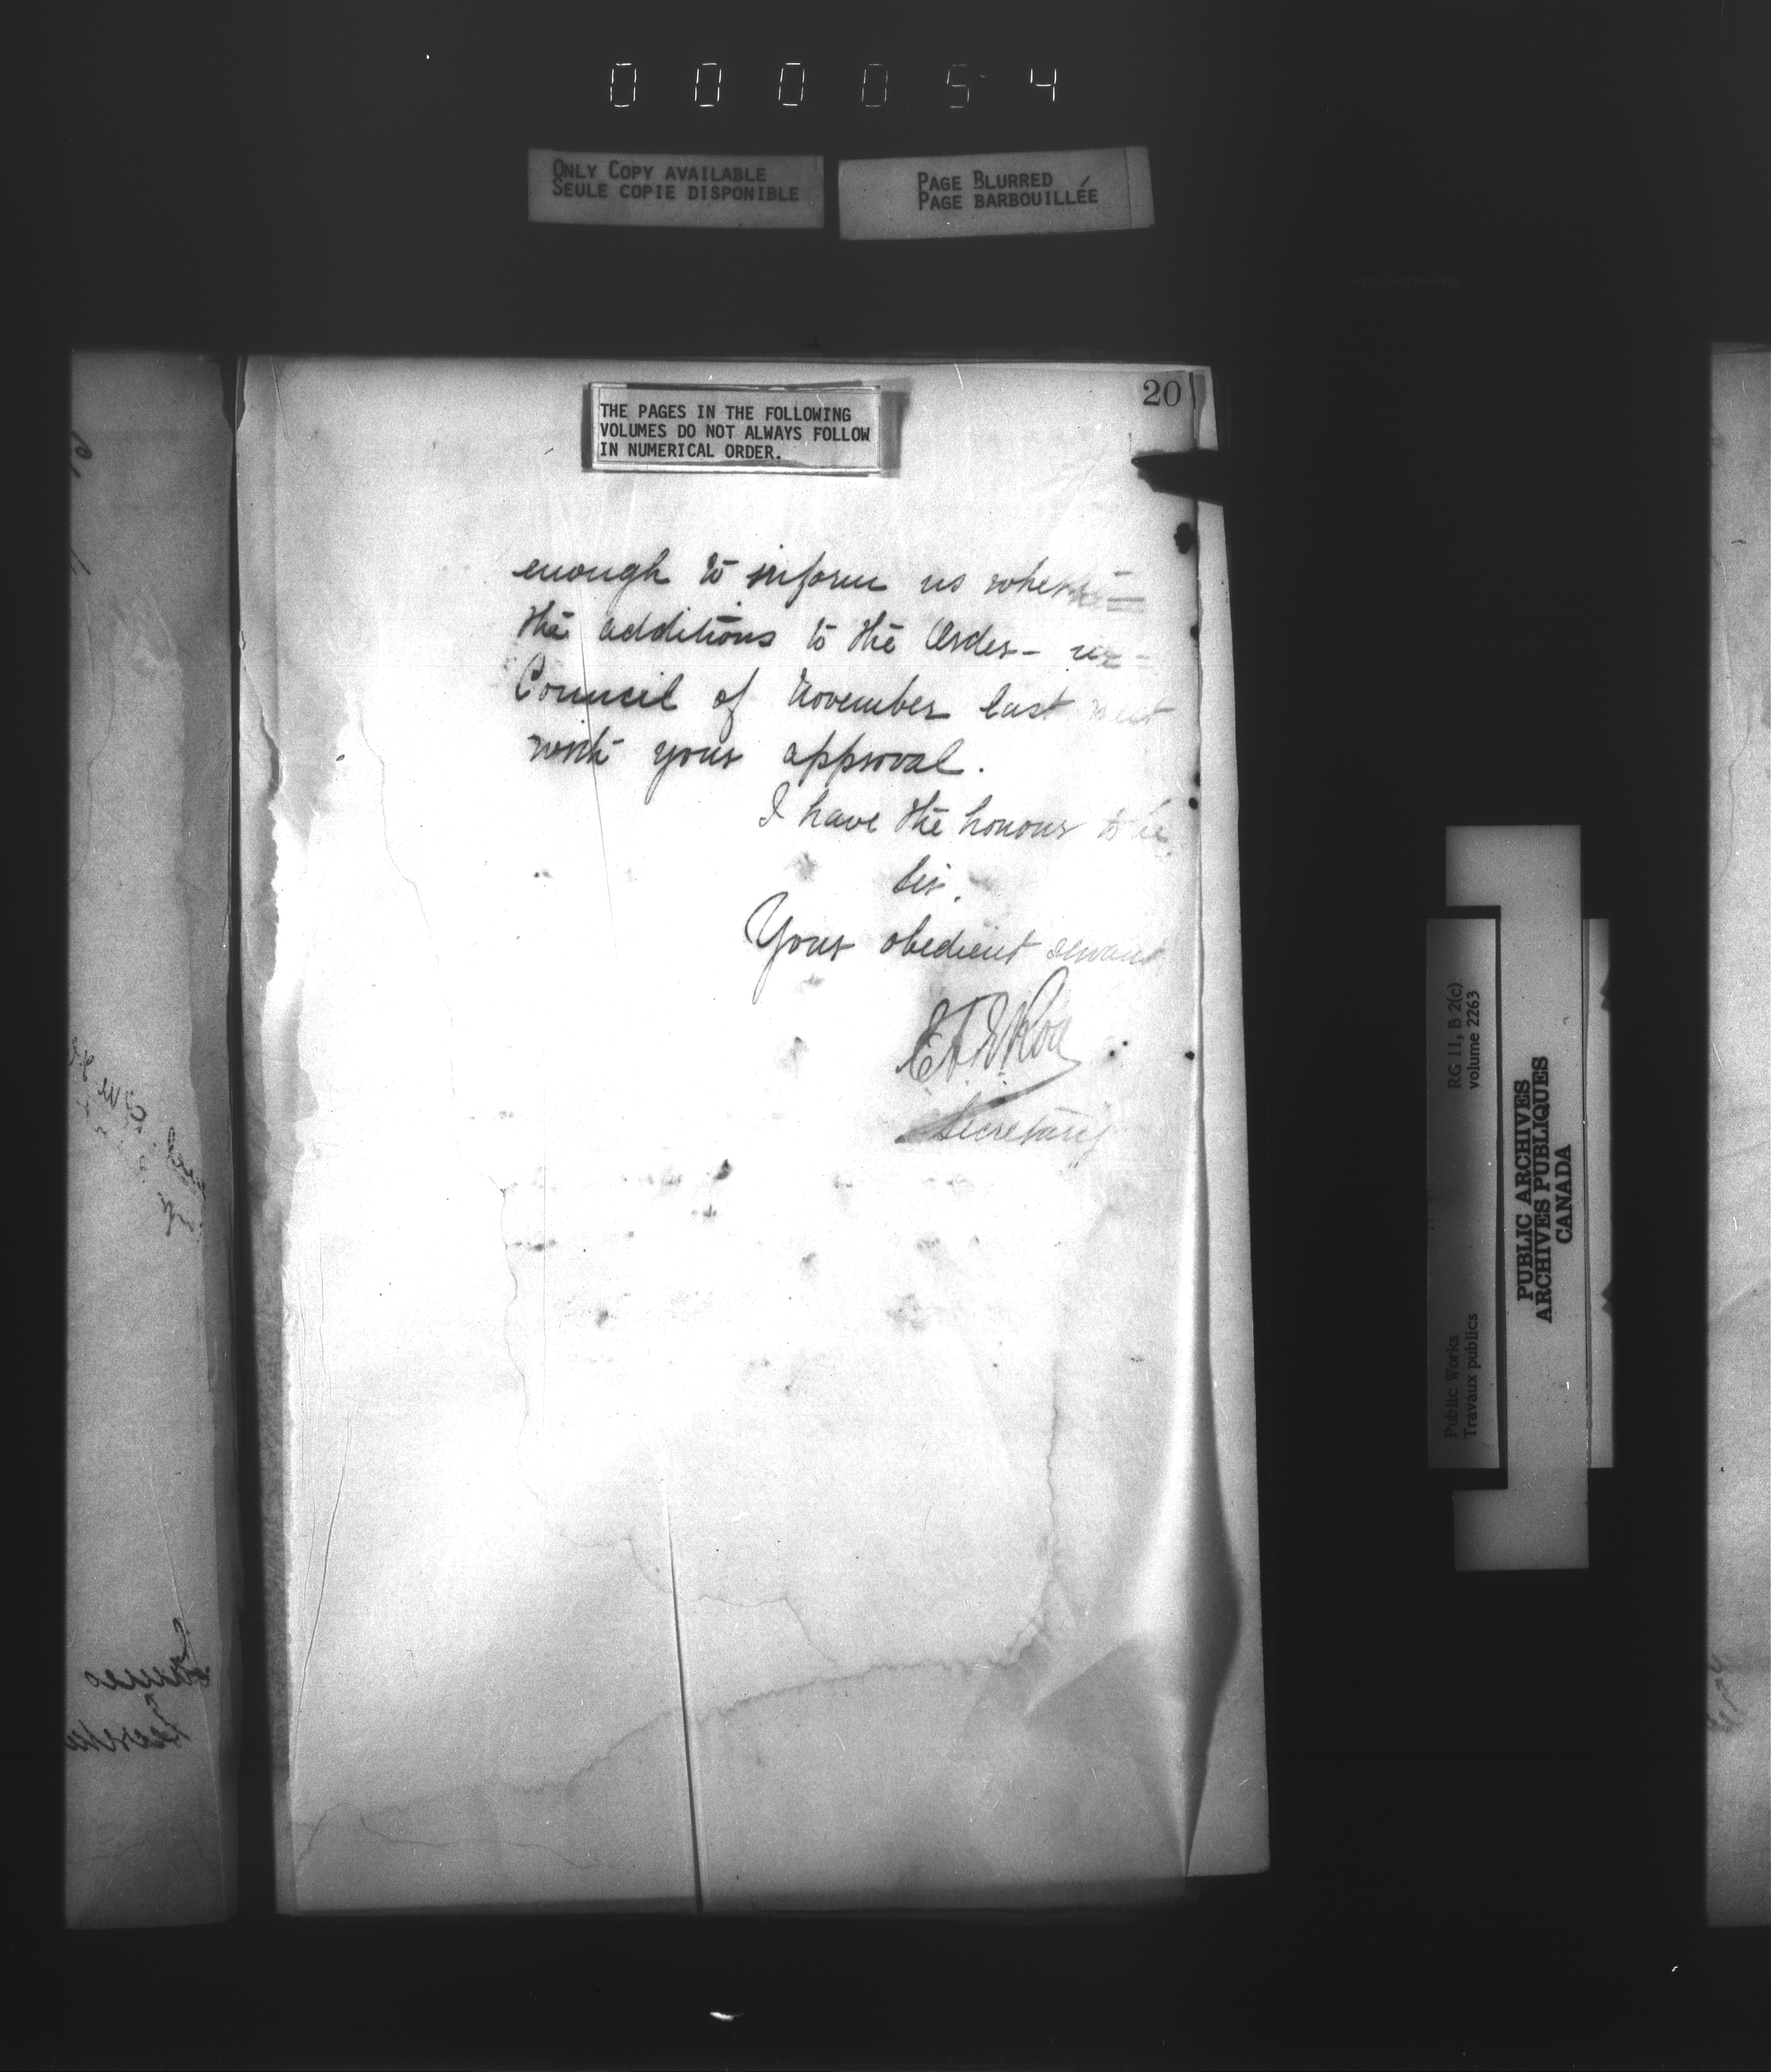 000054
ONLY COPY AVAILABLE
SEULE COPIE DISPONIBLE
PAGE BLURRED
PAGE BARBOUILLÉE
20
THE PAGES IN THE FOLLOWING
VOLUMES DO NOT ALWAYS FOLLOW
IN NUMERICAL ORDER.
enough to inform us whether
the additions to the Order-in-
Council of November last meet
with your approval.
I have the honour to be
Sir.
Your obedient servant
Secretary
RG 11, B 2(c)
volume 2263
Public Works
Travaux publics
PUBLIC ARCHIVES
ARCHIVES PUBLIQUES
CANADA